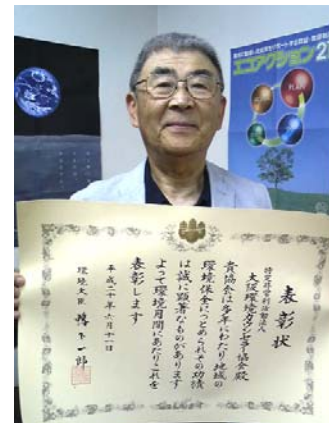 エコアクション2
PLAN
表彰状
特定非営利活動法人
大阪環境カウンセラー協会殿
貴協会は多年にわたり地域の
環境保全につとめられその功績
は誠に顕著なものがあります
よって環境月間にあたりこれを
表彰します
平成二十年六月十一日
環境大臣 鴨下一郎